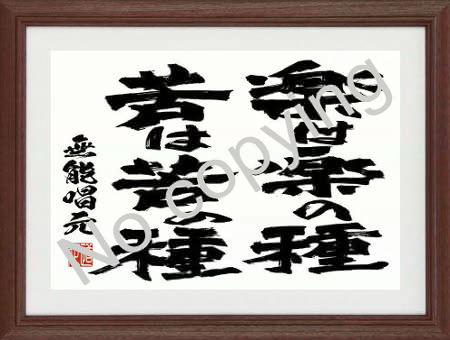 楽は楽の種
苦は苦の種
無能唱元
No copying